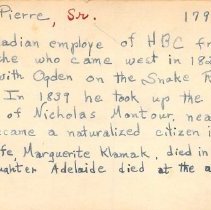 Pierre, Sr. 179
adian employe of HBC fr
he who came west in 182
with Ogden on the Snake
In 1839 he took up the
of Nicholas Montour, nea
came a naturalized citizen i
fe, Marguerite Klamak, died in
ughter Adelaide died at the a